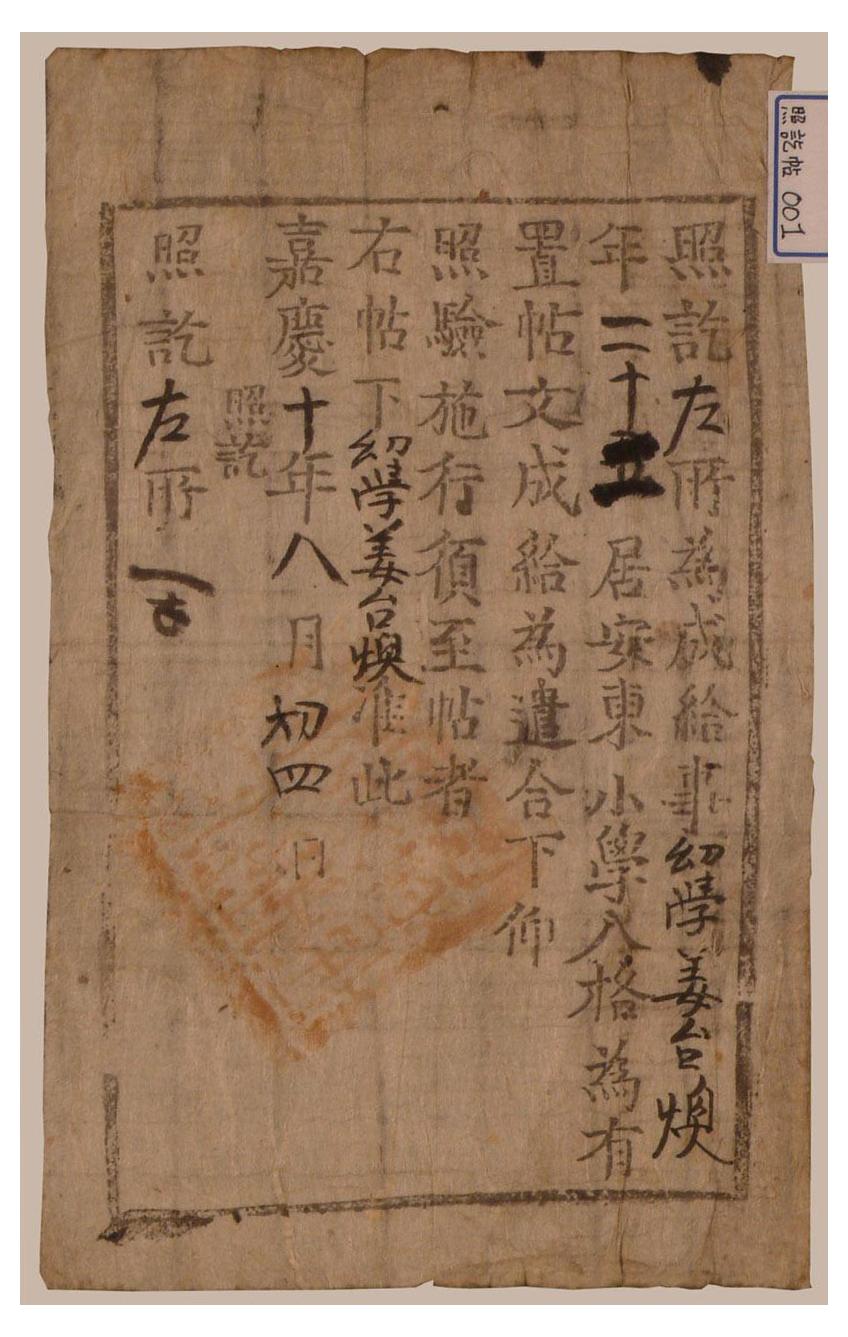 照訖左所為成給事幼學姜台煥
年二十五居安東小學入格為有
置帖文成給為遣合下仰
照驗施行須至帖者
右帖下幼學姜台煥准此
嘉慶十年八月初四日
照訖
照訖左所
照訖帖 001